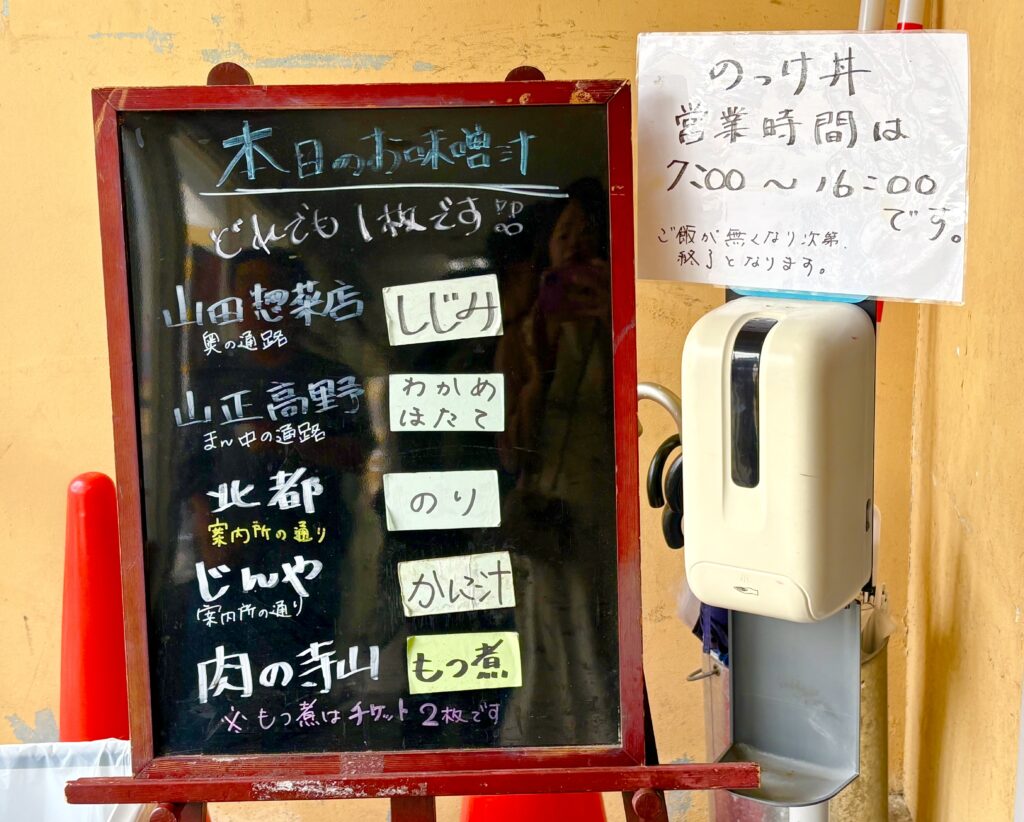 本日のお味噌汁
どれでも1枚です!!
山田惣菜店
奥の通路
しじみ
山正高野
まん中の通路
わかめ
ほたて
北都
案内所の通り
のり
じんや
案内所の通り
かに汁
肉の寺山
もつ煮
※もつ煮はチケット2枚です
のっけ丼
営業時間は
7:00～16:00
です。
ご飯が無くなり次第、
終了となります。